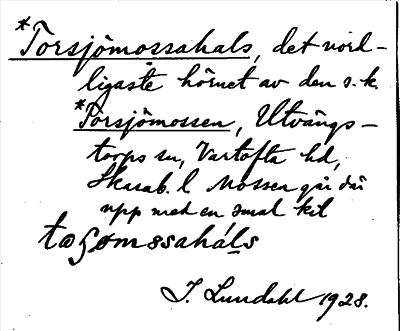 *Torsjömossahals, det nord-
ligaste hörnet av den s. k.
*Torsjömossen, Utvängs-
torps sn, Vartofta hd,
Skarab. l. Mossen går där
upp med en smal kil
J. Lundahl 1928.